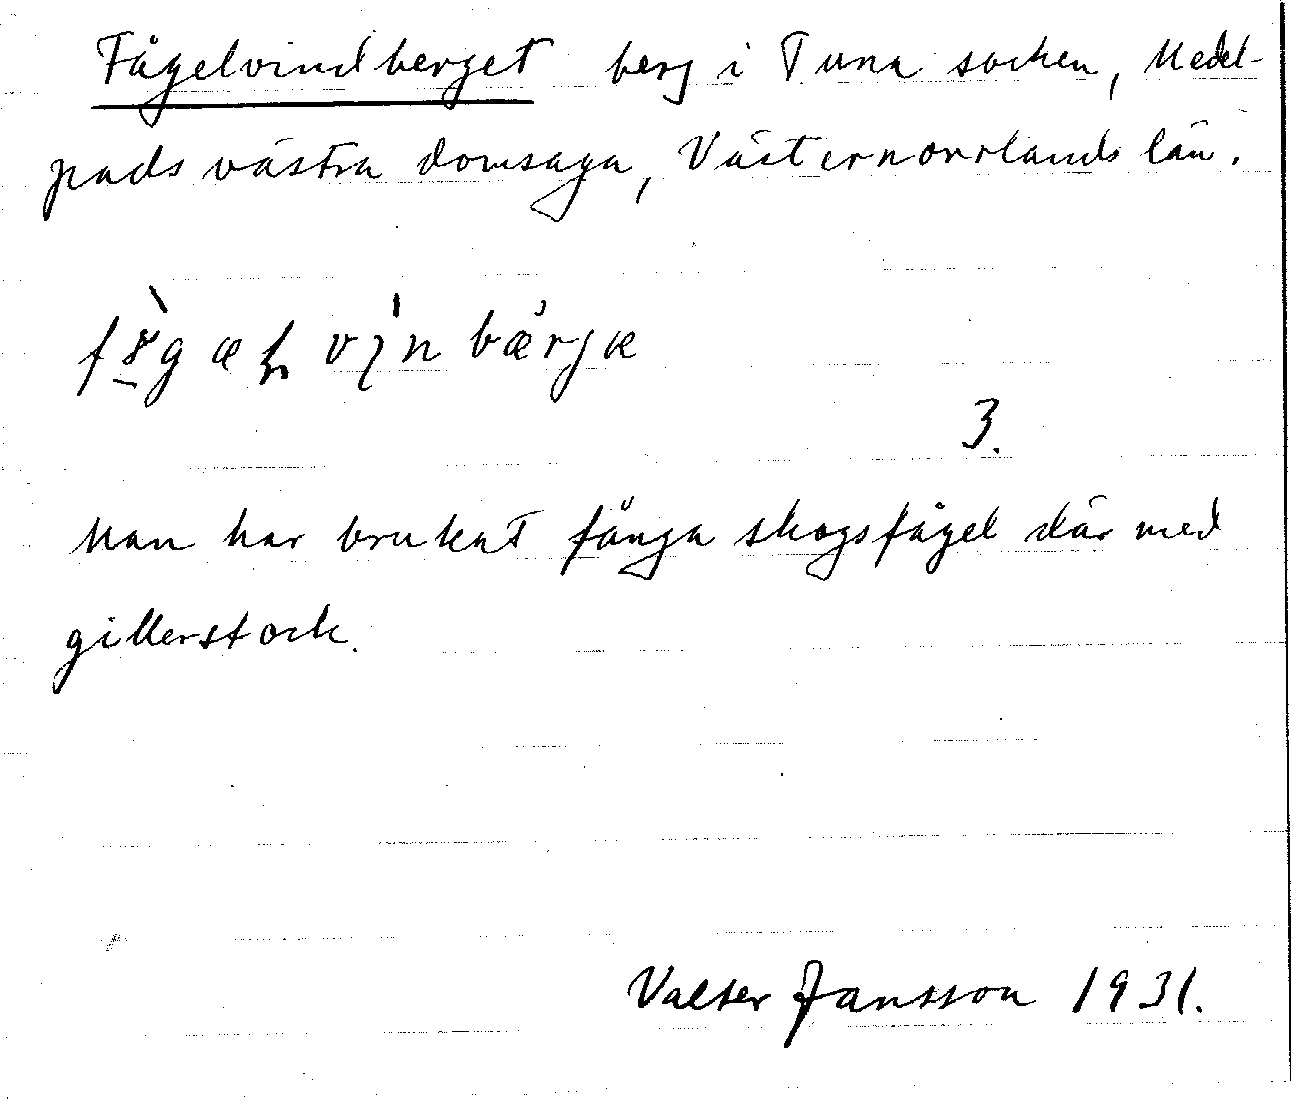 Fågelvindberget berg i Tuna socken, Medel-
pads västra domsaga, Västernorrlands län.
3.
Man har brukat fånga skogsfågel där med
gillerstock.
Valter Jansson 1931.